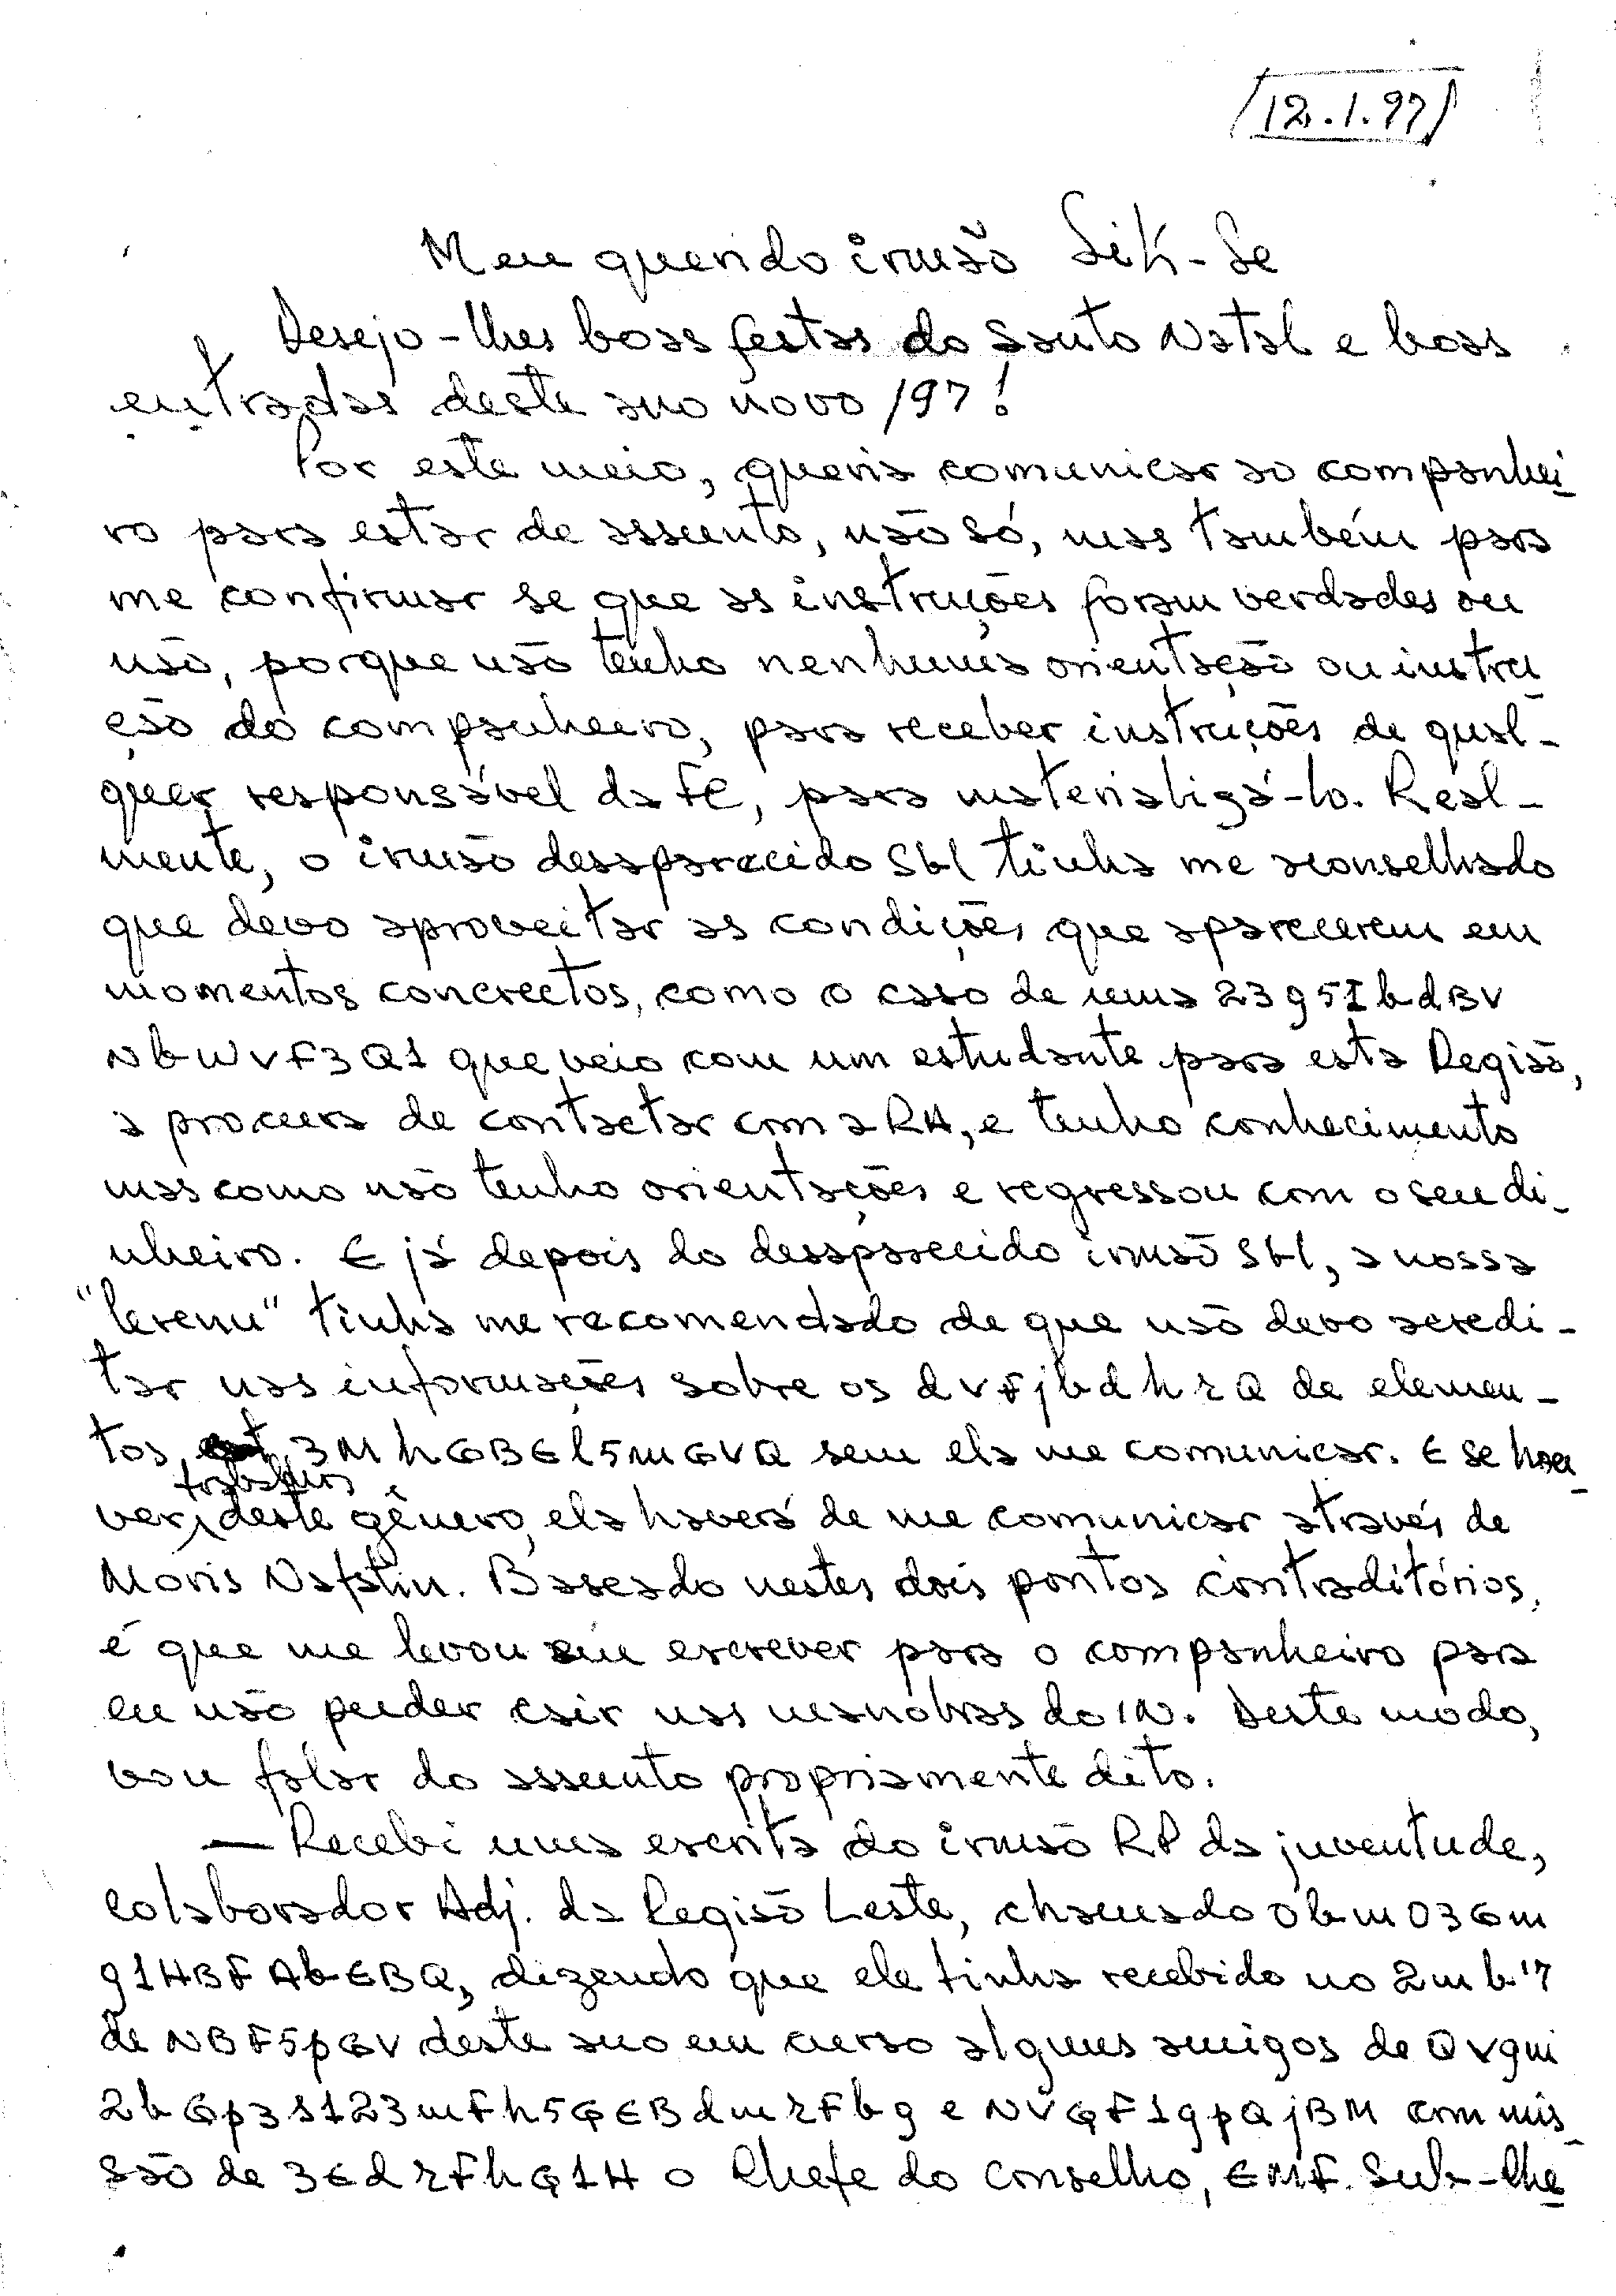 12.1.97
Meu querido irmão Sik-Se
Desejo-lhes boas festas do Santo Natal e boas
entradas deste ano novo/97!
Por este meio, queria comunicar ao companhei_
ro para estar de assunto, não só, mas também para
me confirmar se que as instruções foram verdades ou
não, porque não tenho nenhuma orientação ou instru_
ção do companheiro, para receber instruções de qual-
quer responsável da FC, para materializá-lo. Real-
mente, o irmão desaparecido Sbl tinha me aconselhado
que devo aproveitar as condições que aparecerem em
momentos concrectos, como o caso de uma 23g5IbdBV
NbWVF3Q1 que veio com um estudante para esta Região,
a procura de contactar com a RH, e tenho conhecimento
mas como não tenho orientações e regressou com o seu di_
nheiro. E já depois do desaparecido irmão Sbl, a nossa
"lerenu" tinha me recomendado de que não devo acredi-
tar nas informações sobre os dvFjbdhrQ de elemen-
tos 3MhGBEl5mGVQ sem ela me comunicar. E se hou_
ver trabalhos deste gênero, ela haverá de me comunicar através de
Moris Nafatin. Baseado nestes dois pontos contraditórios,
é que me levou em escrever para o companheiro para
eu não puder cair nas manobras do IN. Deste modo,
vou falar do assunto propriamente dito.
— Recebi uma escrita do irmão RP da juventude,
colaborador Adj. da Região Leste, chamado Obm03Gm
g1HBFAbEBQ, dizendo que ele tinha recebido no 2mb'7
de NBF5pGV deste ano em curso alguns amigos de QVgm
2bGp3s123mFh5GEBdmrFbg e NVGF1gpQjBM com mis_
são de 3EdrFhG1H o Chefe do Conselho, EMF. Sub-Che_